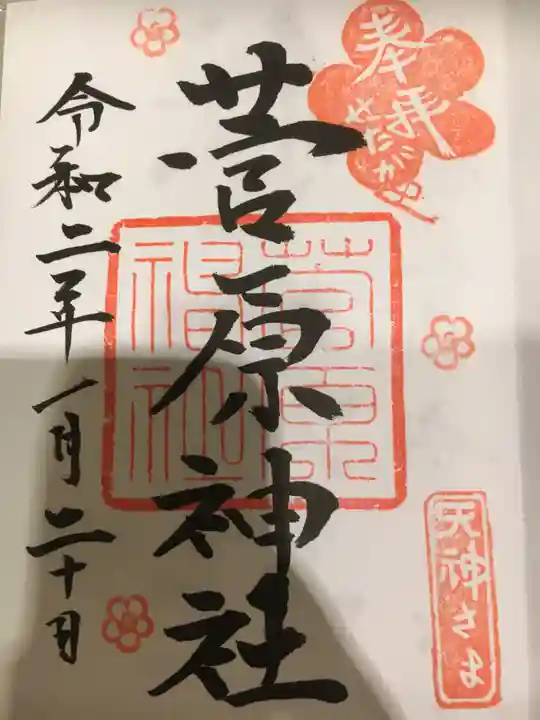 奉拝
せたがや
天神さま
菅原神社
菅原
神社
令和二年一月二十日